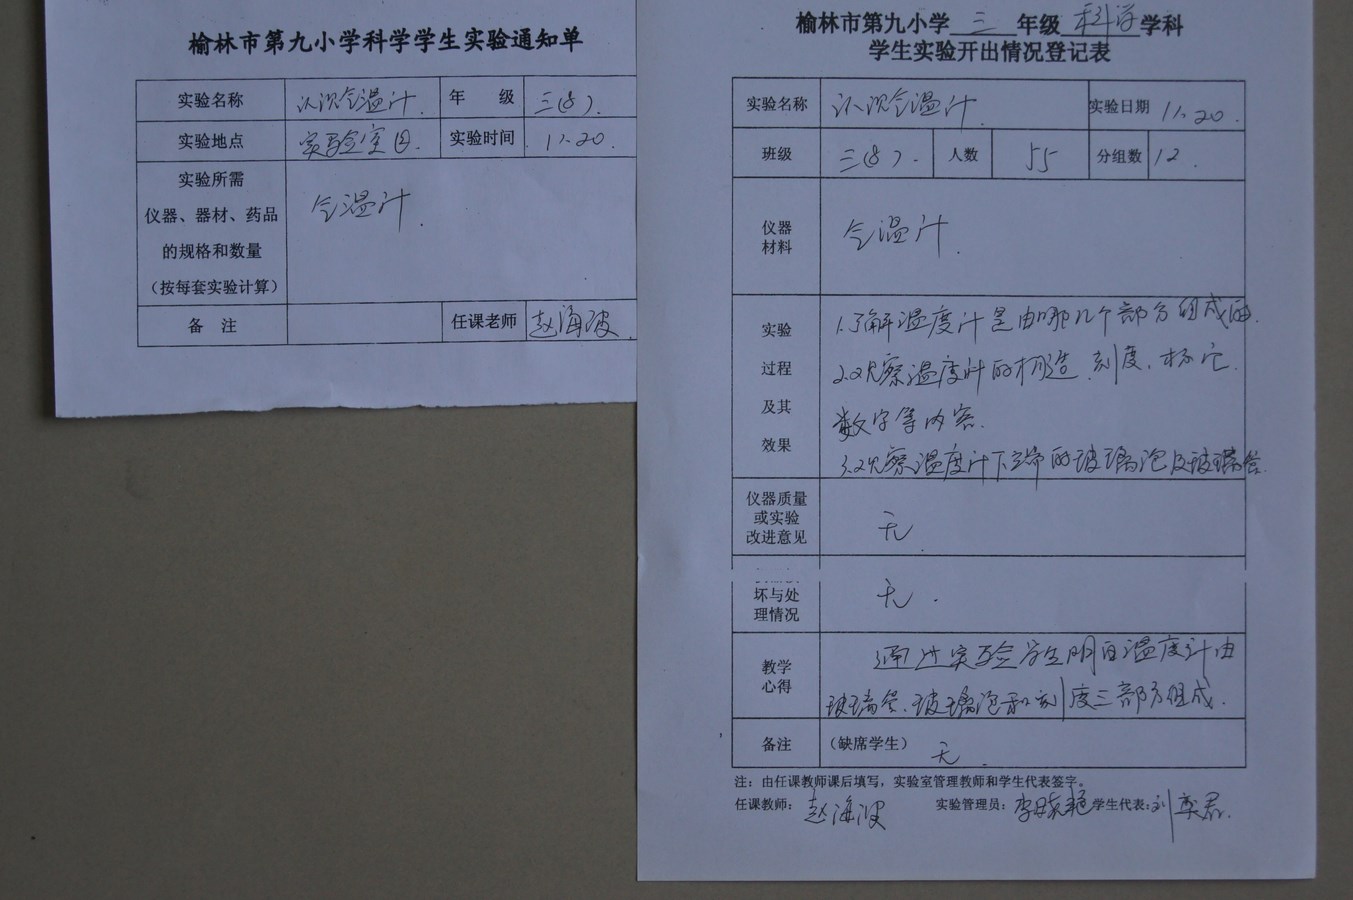 榆林市第九小学科学学生实验通知单
实验名称 认识气温计. 年 级 三(8).
实验地点 实验室 实验时间 11.20.
实验所需
仪器、器材、药品
的规格和数量
（按每套实验计算）
气温计.
备 注 任课老师 赵海波.
榆林市第九小学 三 年级 科学 学科
学生实验开出情况登记表
实验名称 认识气温计. 实验日期 11.20.
班级 三(8). 人数 55 分组数 12.
仪器
材料
气温计.
实验
过程
及其
效果
1.了解温度计是由哪几个部分组成的.
2.观察温度计的构造.刻度.标它.
数字等内容.
3.观察温度计下端的玻璃泡及玻璃管.
仪器质量
或实验
改进意见
无.
坏与处
理情况
无.
教学
心得
通过实验学生明白温度计由
玻璃管.玻璃泡和刻度三部分组成.
备注 （缺席学生） 无.
注：由任课教师课后填写，实验室管理教师和学生代表签字。
任课教师： 赵海波 实验管理员： 李晓艳 学生代表： 刘